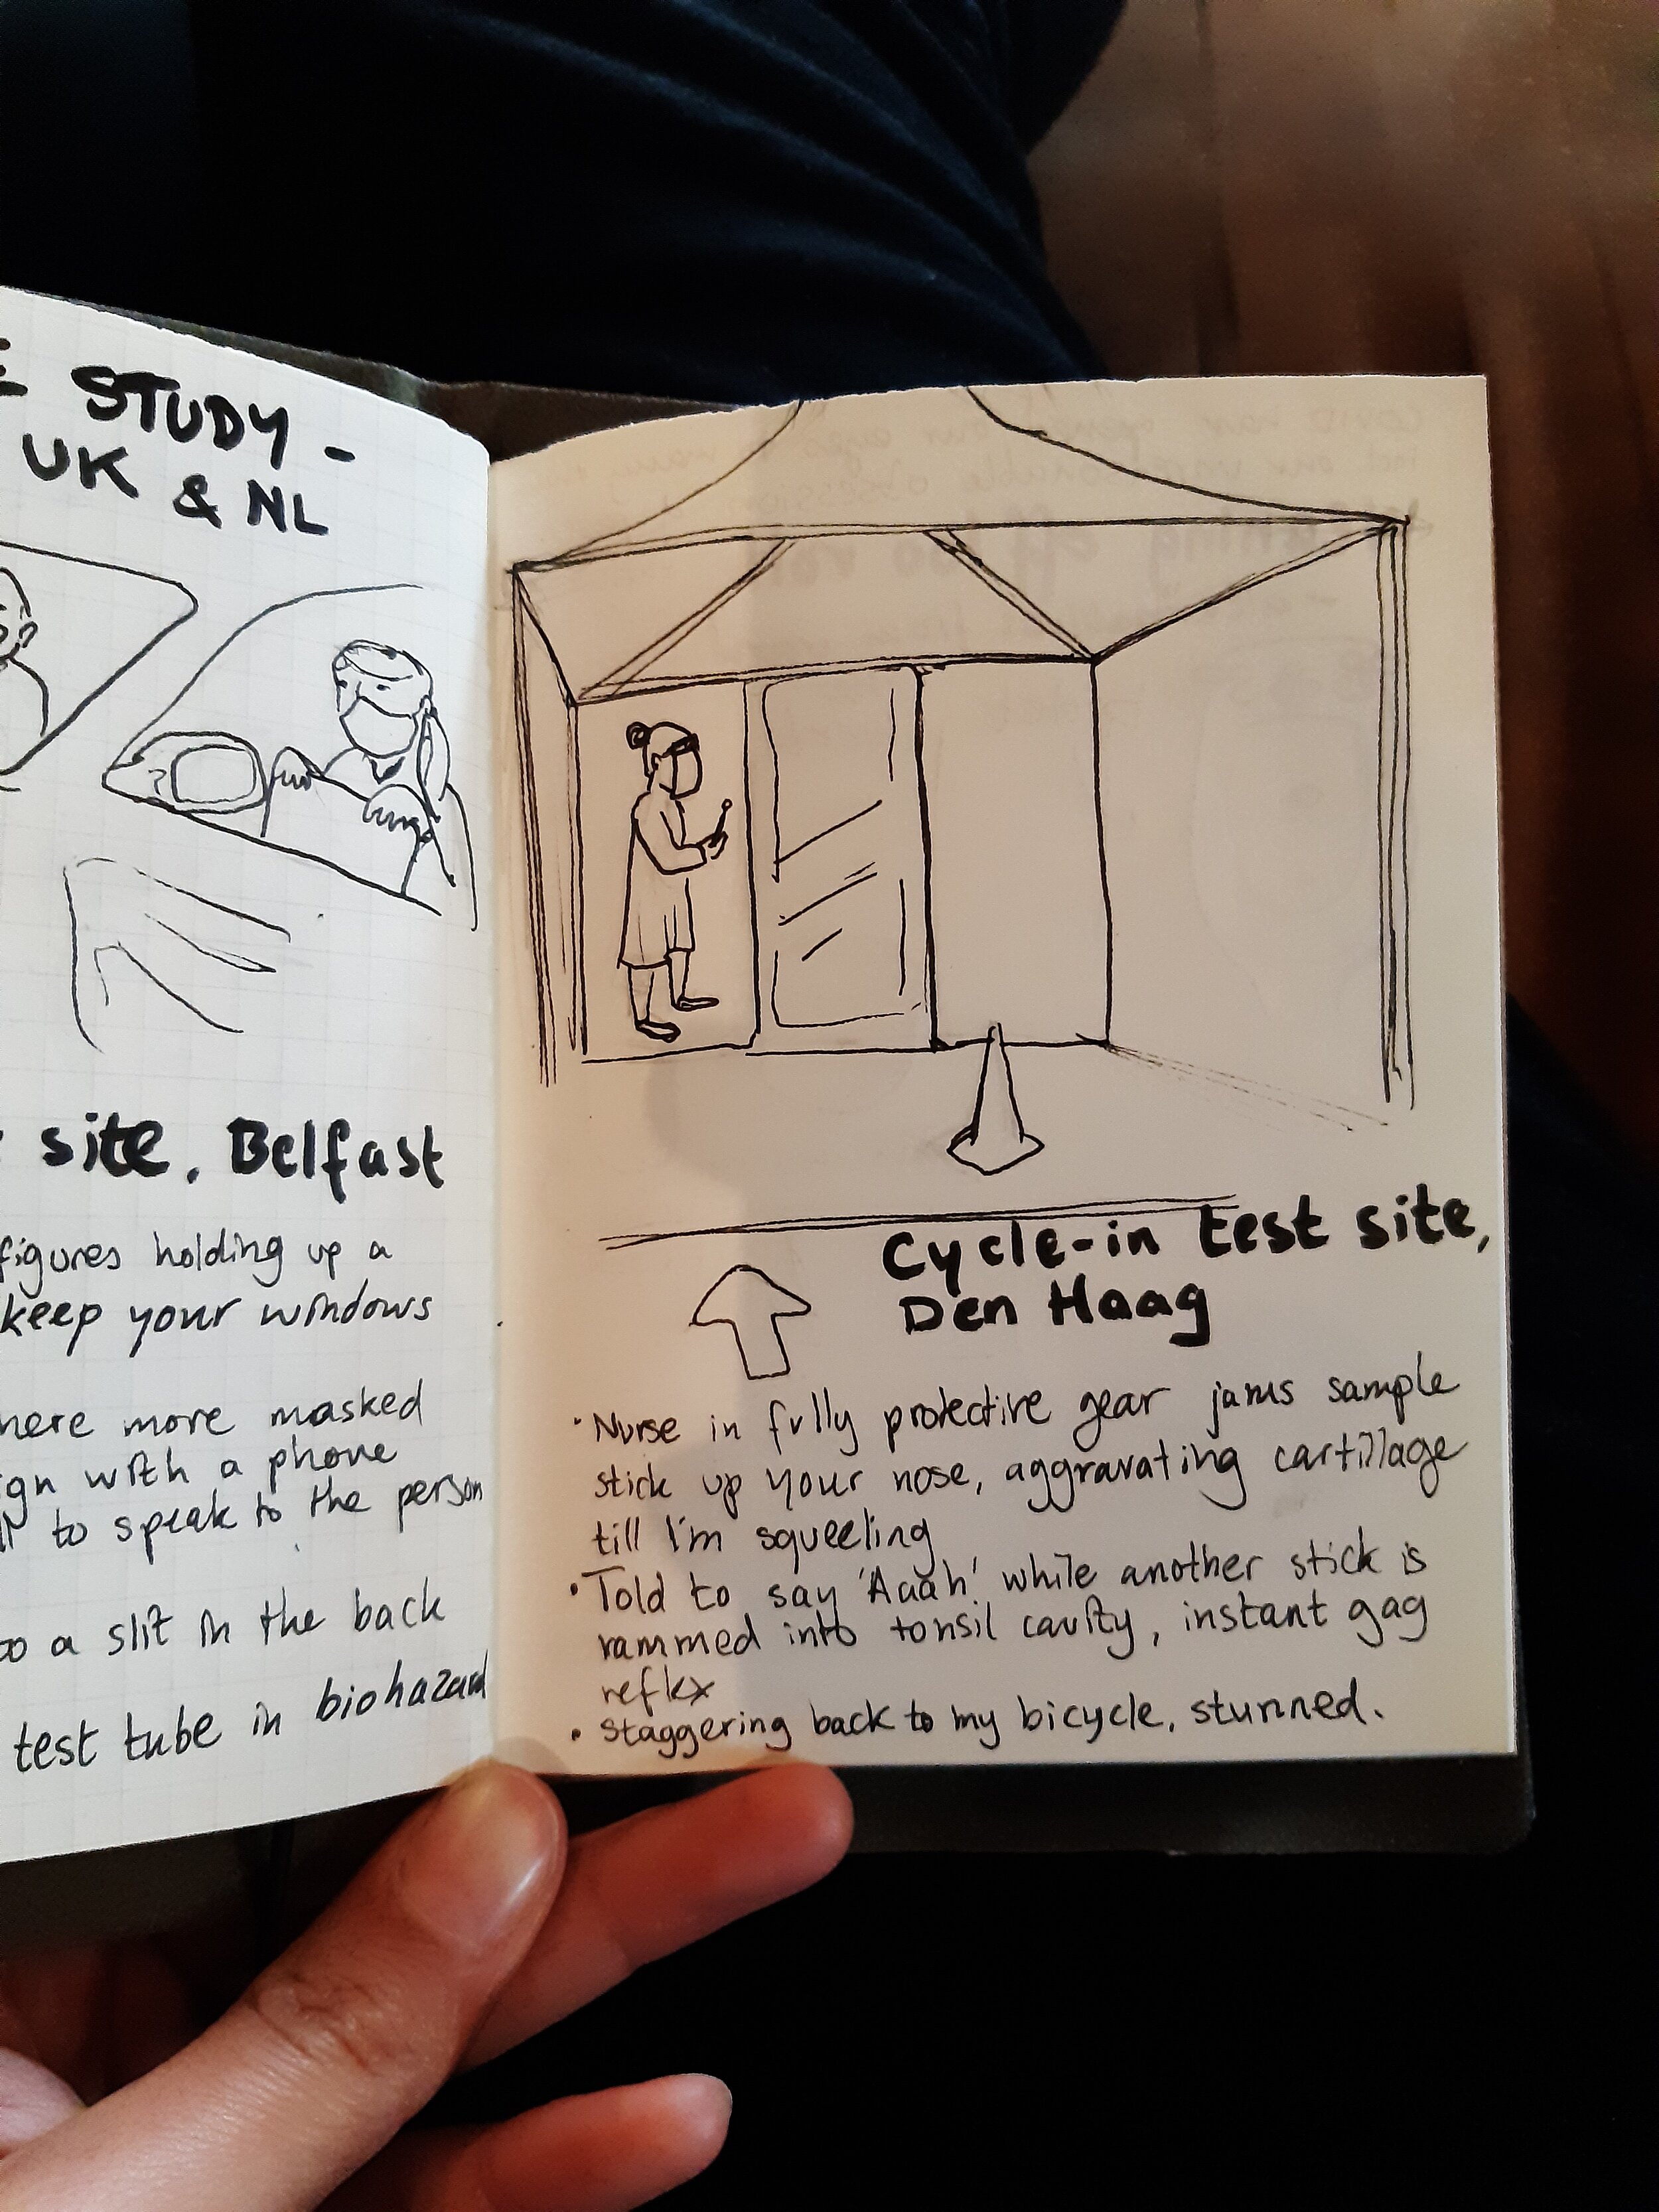 STUDY -
UK & NL
site, Belfast
figures holding up a
keep your windows
more masked
with a phone
to speak to the person
a slit in the back
test tube in biohazard
Cycle-in test site,
Den Haag
• Nurse in fully protective gear jams sample
stick up your nose, aggravating cartillage
till I'm squeeling
• Told to say 'Aaah' while another stick is
rammed into tonsil cavity, instant gag
reflex
• Staggering back to my bicycle, stunned.